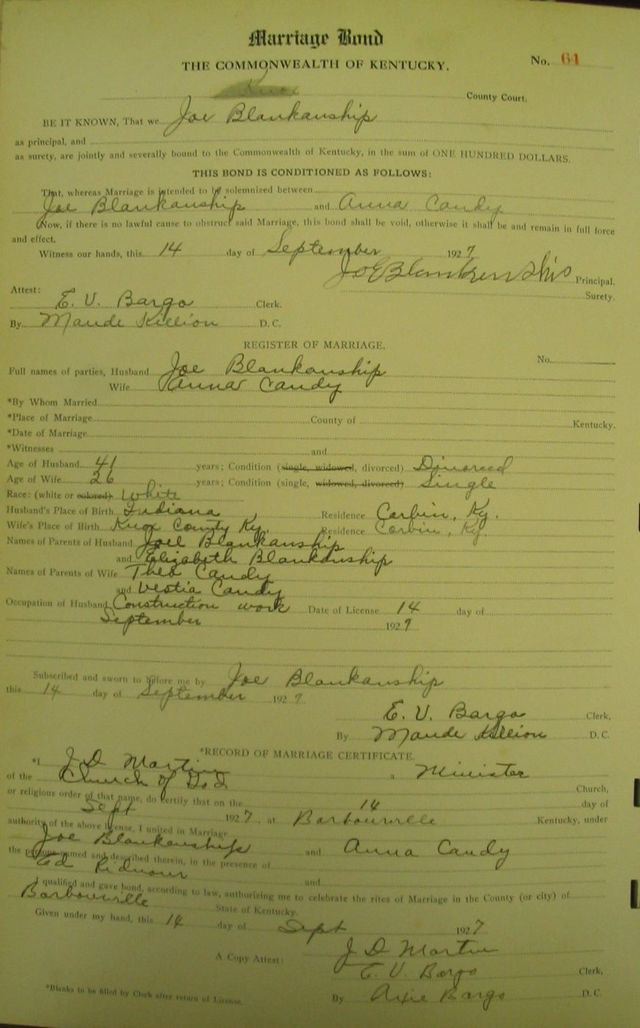 Marriage Bond
THE COMMONWEALTH OF KENTUCKY.
No. 61
Knox County Court.
BE IT KNOWN, That we Joe Blankanship
as principal, and
as surety, are jointly and severally bound to the Commonwealth of Kentucky, in the sum of ONE HUNDRED DOLLARS.
THIS BOND IS CONDITIONED AS FOLLOWS:
That, whereas Marriage is intended to be solemnized between
Joe Blankanship and Anna Candy
Now, if there is no lawful cause to obstruct said Marriage, this bond shall be void, otherwise it shall be and remain in full force
and effect.
Witness our hands, this 14 day of September 1927
Joe Blankenship Principal.
Surety.
Attest:
E. V. Bargo Clerk.
By Maude Killion D. C.
REGISTER OF MARRIAGE.
No.
Full names of parties, Husband Joe Blankanship
Wife Anna Candy
*By Whom Married
*Place of Marriage County of Kentucky.
*Date of Marriage
*Witnesses and
Age of Husband 41 years; Condition (single, widowed, divorced) Divorced
Age of Wife 26 years; Condition (single, widowed, divorced) Single
Race: (white or colored) White
Husband's Place of Birth Indiana Residence Corbin, Ky.
Wife's Place of Birth Knox County Ky. Residence Corbin, Ky.
Names of Parents of Husband Joel Blankanship
and Elizabeth Blankanship
Names of Parents of Wife Theo Candy
and Vestia Candy
Occupation of Husband Construction work Date of License 14 day of
September 1927
Subscribed and sworn to before me by Joe Blankanship
this 14 day of September 1927
E. V. Bargo Clerk,
By Maude Killion D. C.
*RECORD OF MARRIAGE CERTIFICATE.
*I J D Martin a Minister
of the Church of God Church,
or religious order of that name, do certify that on the 14 day of
Sept 1927, at Barbourville Kentucky, under
authority of the above license, I united in Marriage
Joe Blankanship and Anna Candy
the persons named and described therein, in the presence of
Ed Ridnour and
I qualified and gave bond, according to law, authorizing me to celebrate the rites of Marriage in the County (or city) of
Barbourville State of Kentucky.
Given under my hand, this 14 day of Sept 1927
J D Martin
A Copy Attest: E. V. Bargo Clerk,
By Arxie Bargo D. C.
*Blanks to be filled by Clerk after return of License.